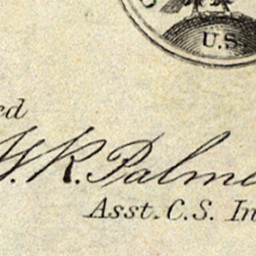 U.S.
ed
W.R. Palme
Asst. C.S. In